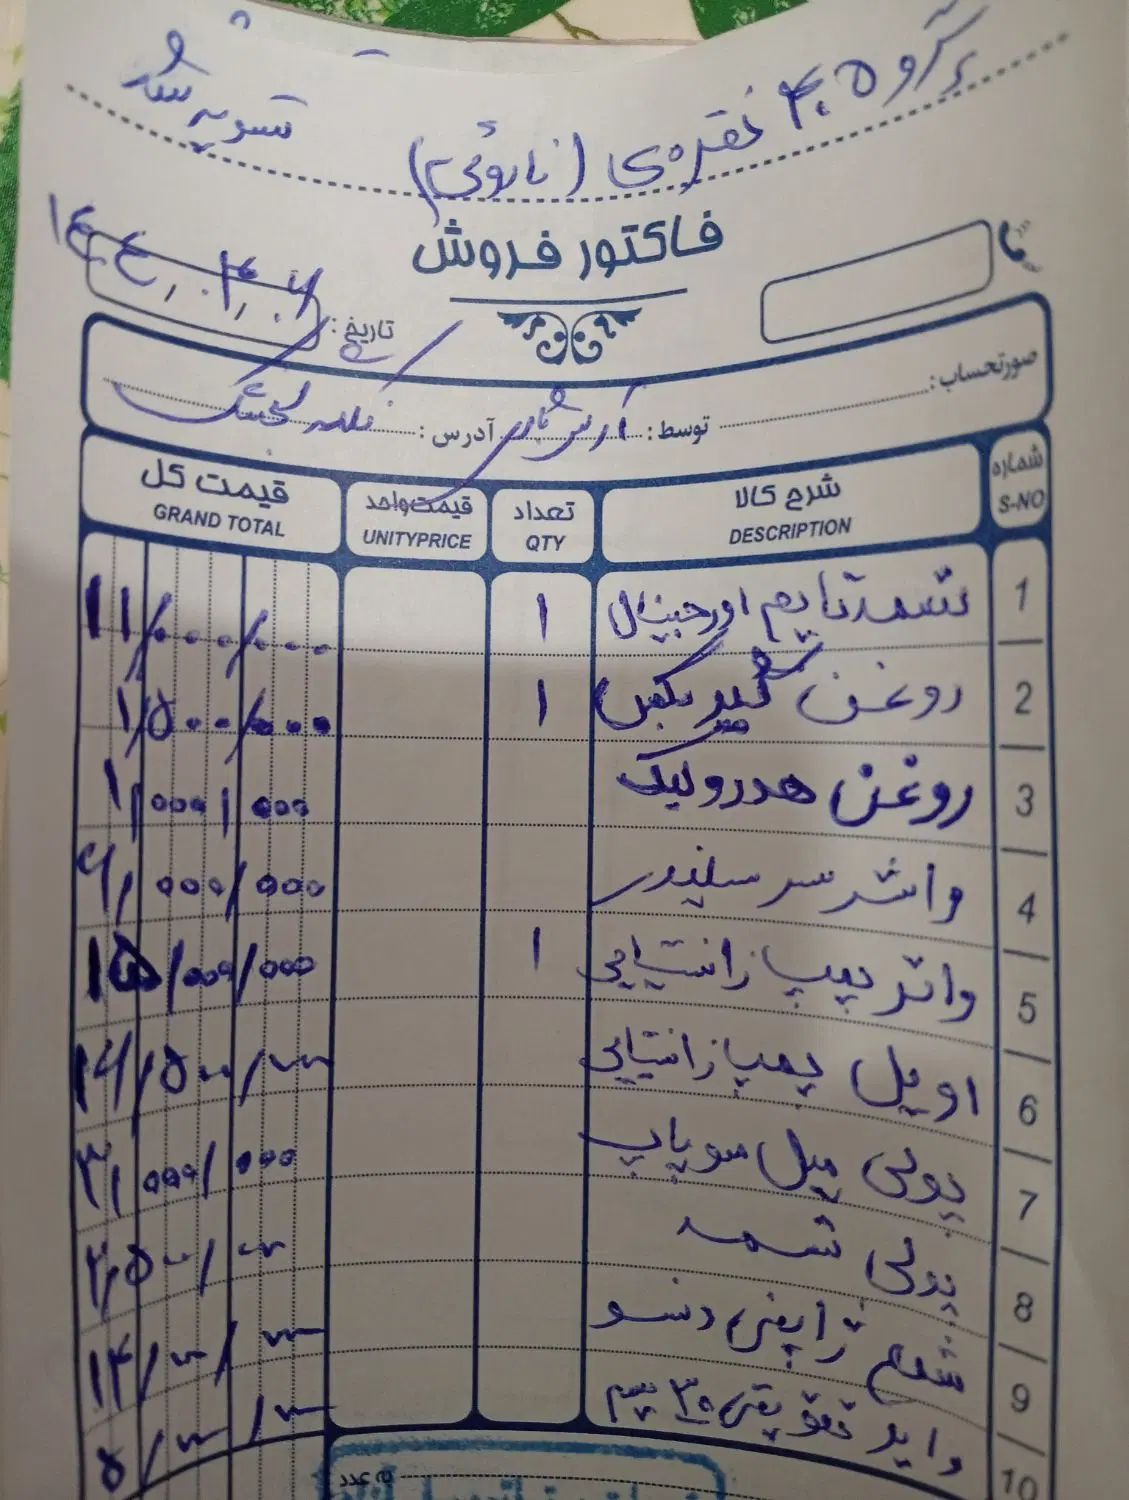 پژو ۴۰۵ نقره‌ی (ناروئی)
تسویه شد
فاکتور فروش
تاریخ: ۱۴۰۴/۰۴/۰۶
صورتحساب:
توسط: آدرس:
شماره S-NO
شرح کالا DESCRIPTION
تعداد QTY
قیمت واحد UNITYPRICE
قیمت کل GRAND TOTAL
1 تسمه تایم اورجینال ۱ ۱۱/۰۰۰/۰۰۰
2 روغن ۱ ۱/۵۰۰/۰۰۰
3 روغن هدرولیک ۱/۰۰۰/۰۰۰
4 واشر سرسیلندر ۶/۰۰۰/۰۰۰
5 واتر پمپ زانتیایی ۱ ۱۵/۰۰۰/۰۰۰
6 اویل پمپ زانتیایی ۱۶/۵۰۰/۰۰۰
7 پولی میل سوپاپ ۳/۰۰۰/۰۰۰
8 پولی تسمه ۲/۵۰۰/۰۰۰
9 شمع ژاپنی دنسو ۱۴/۰۰۰/۰۰۰
10 وایر تقویتی ۵/۰۰۰/۰۰۰